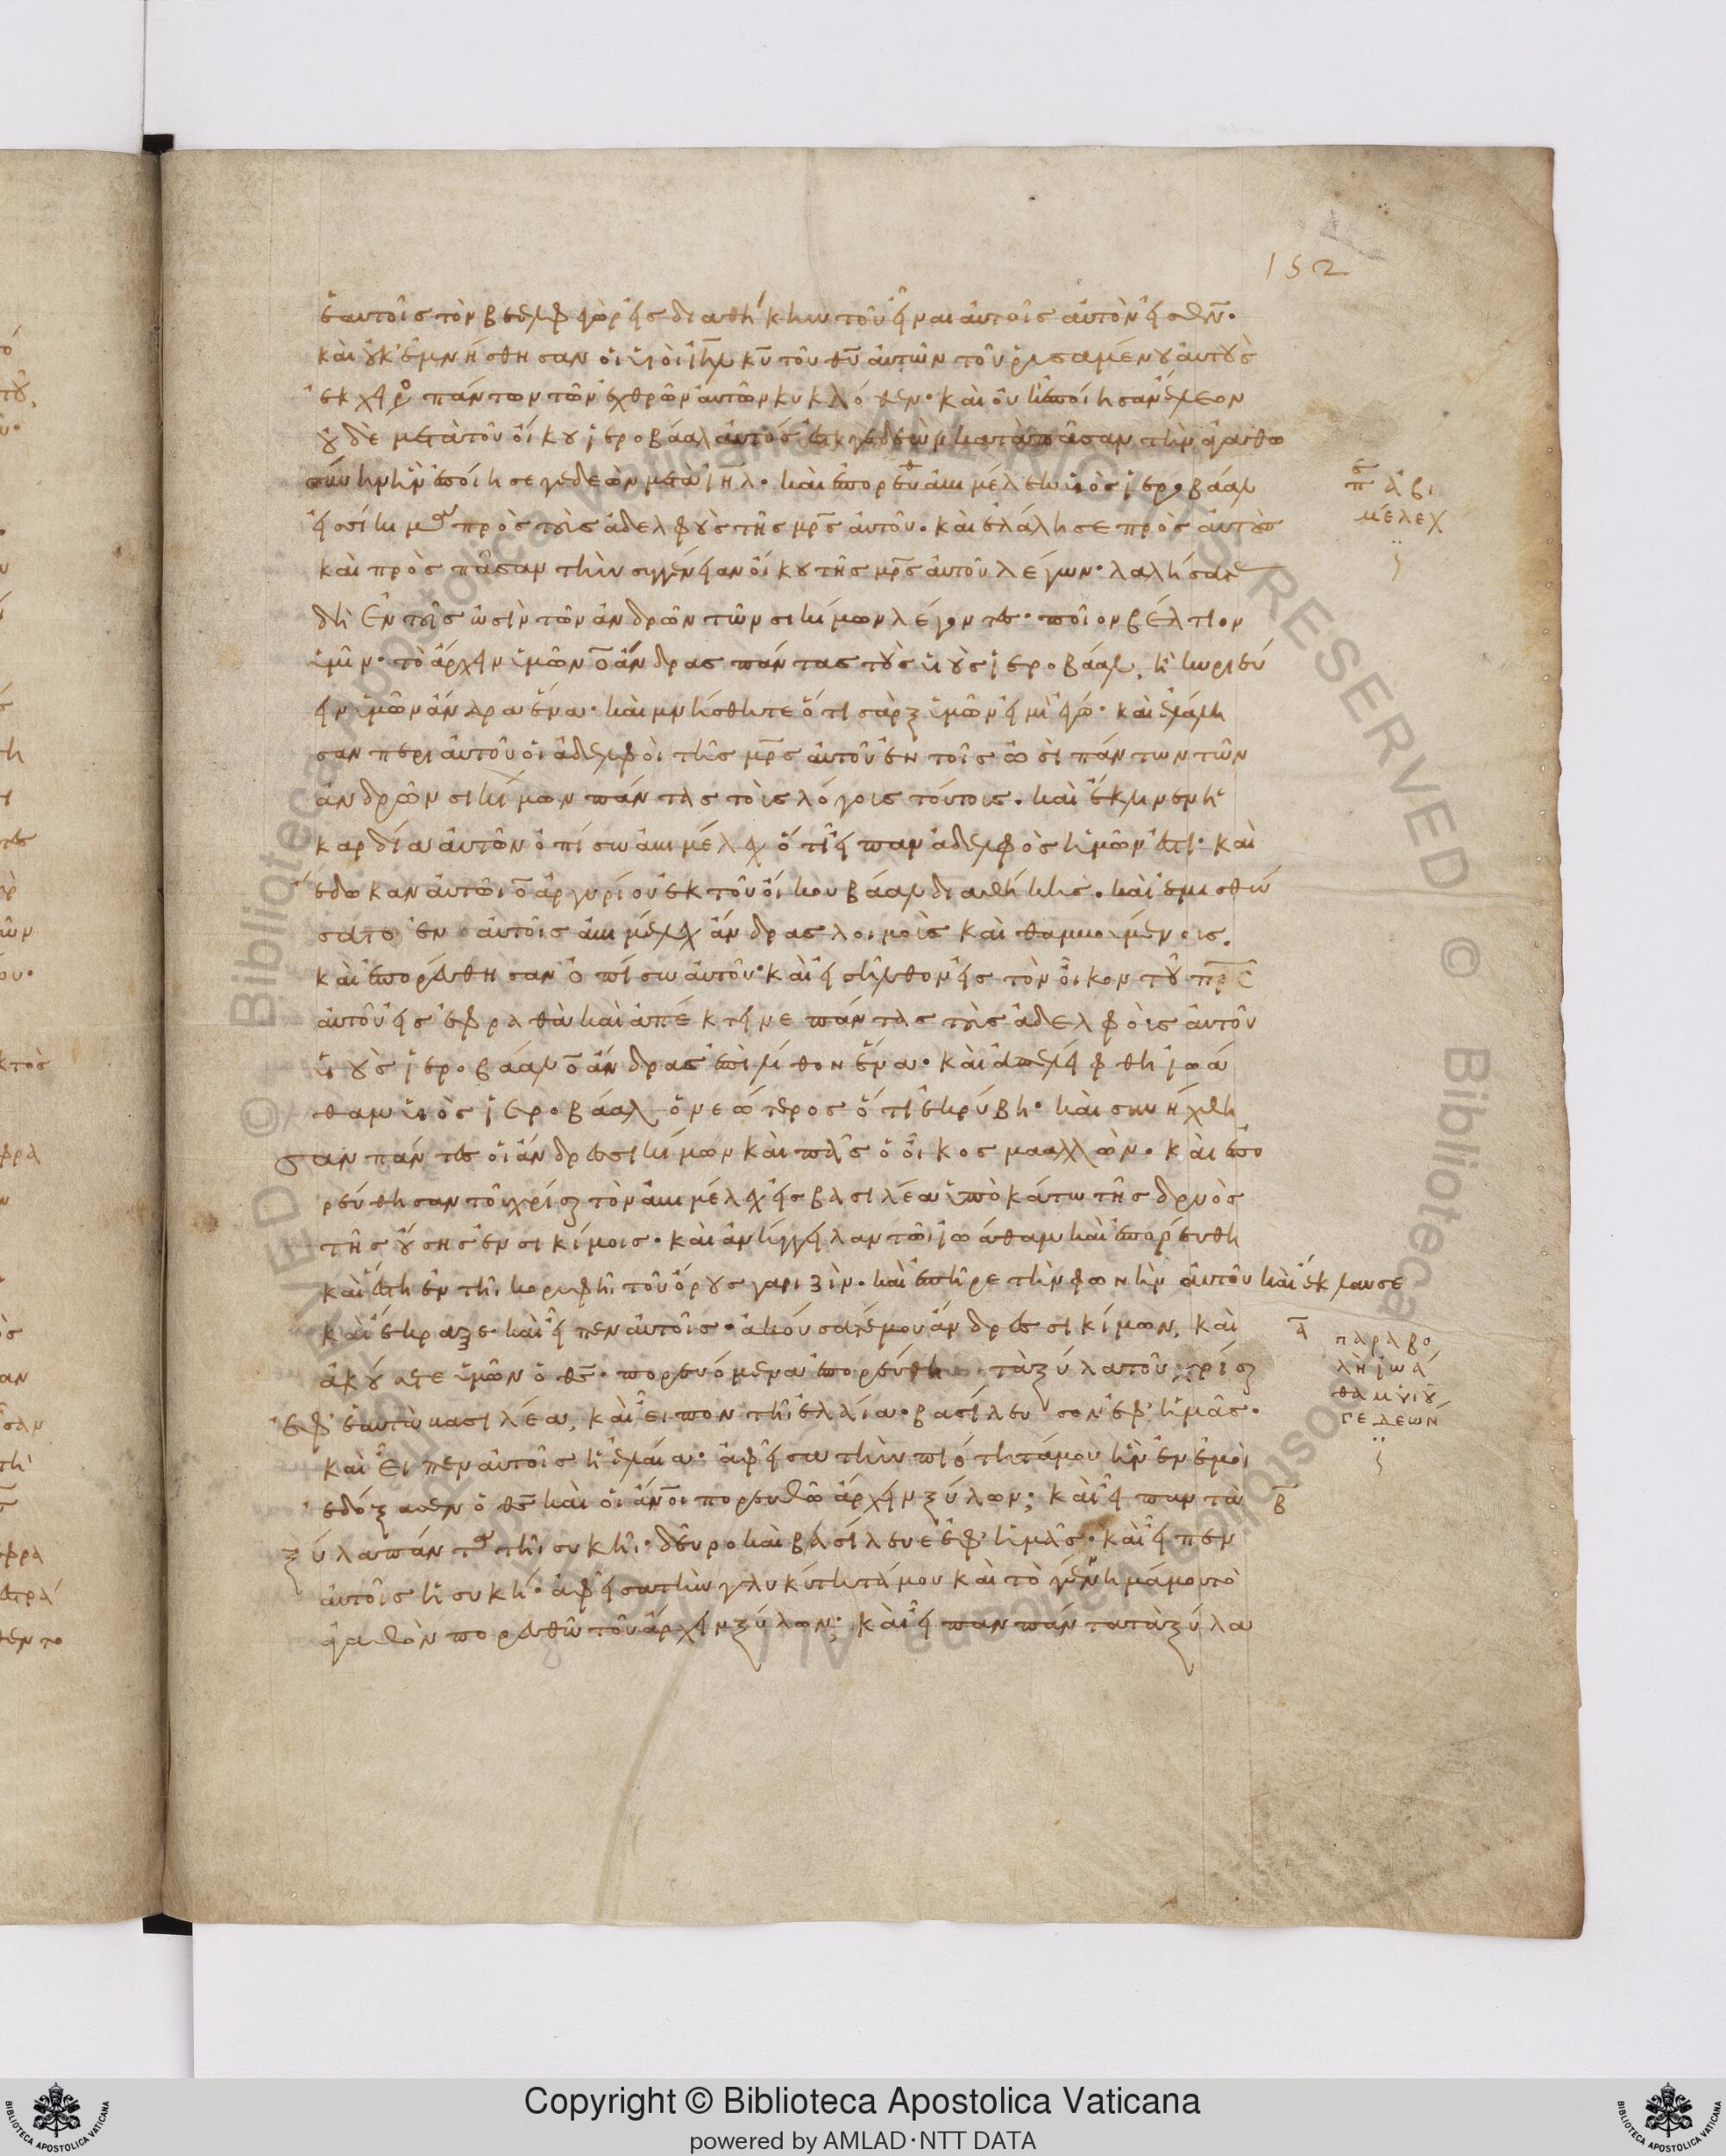 152
ἑαυτοῖς τὸν βεελφεγὼρ εἰς διαθήκην τοῦ εἶναι αὐτοῖς αὐτὸν εἰς θν̅.
καὶ οὐκ ἐμνήσθησαν οἱ υἱοὶ ιη̅λ κυ̅ τοῦ θυ̅ αὐτῶν τοῦ ῥυσαμένου αὐτοὺς
ἐκ χειρο πάντων τῶν ἐχθρῶν αὐτῶν κυκλόθεν. καὶ οὐκ ἐποίησαν ἔλεον
οὐδὲ μετὰ τοῦ οἴκου ἱεροβάαλ αὐτός ἐστι γεδεὼν κατὰ πᾶσαν τὴν ἀγαθω
σύνην ἣν ἐποίησε γεδεὼν μετὰ ιη̅λ. καὶ ἐπορεύθη ἀβιμέλεχ υἱὸς ἱεροβάαλ
εἰς σίκιμα πρὸς τοὺς ἀδελφοὺς τῆς μρ̅ς αὐτοῦ. καὶ ἐλάλησε πρὸς αὐτοὺς
καὶ πρὸς πᾶσαν τὴν συγγένειαν οἴκου τῆς μρ̅ς αὐτοῦ λέγων. λαλήσατε
δὴ ἐν τοῖς ὠσὶν τῶν ἀνδρῶν τῶν σικίμων λέγοντες. ποῖον βέλτιον
ὑμῖν. τὸ ἄρχειν ὑμῶν ο̅ ἄνδρας πάντας τοὺς υἱοὺς ἱεροβάαλ, ἢ κυριεύ
ειν ὑμῶν ἄνδρα ἕνα. καὶ μνήσθητε ὅτι σὰρξ ὑμῶν εἰμὶ ἐγώ. καὶ ἐλάλη
σαν περι αὐτοῦ οἱ ἀδελφοὶ τῆς μρ̅ς αὐτοῦ ἐν τοῖς ὠσὶ πάντων τῶν
ἀνδρῶν σικίμων πάντας τοὺς λόγους τούτους. καὶ ἔκλινεν ἡ
καρδία αὐτῶν ὀπίσω ἀβιμέλεχ ὅτι εἶπαν ἀδελφὸς ἡμῶν ἐστι. καὶ
ἔδωκαν αὐτῶι ο̅ ἀργυρίου ἐκ τοῦ οἴκου βάαλ διαθήκης. καὶ ἐμισθώ
σατο ἐν αὐτοῖς ἀβιμέλεχ ἄνδρας λοιμοὺς καὶ θαμβουμένους.
καὶ ἐπορεύθησαν ὀπίσω αὐτοῦ. καὶ εἰσῆλθον εἰς τὸν οἶκον τοῦ πρ̅ς
αὐτοῦ εἰς ἐφραθὰ καὶ ἀπέκτεινε πάντας τοὺς ἀδελφοὺς αὐτοῦ
υἱοὺς ἱεροβάαλ ο̅ ἄνδρας ἐπὶ λίθον ἕνα. καὶ ἀπελείφθη ἰωά
θαμ υἱὸς ἱεροβάαλ ὁ νεώτερος ὅτι ἐκρύβη. καὶ συνήχθη
σαν πάντες οἱ ἄνδρες σικίμων καὶ πᾶς ὁ οἶκος μααλλὼν. καὶ ἐπο
ρεύθησαν τοῦ χρίσαι τὸν ἀβιμέλεχ εἰς βασιλέα ὑποκάτω τῆς δρυὸς
τῆς οὔσης ἐν σικίμοις. καὶ ἀνήγγειλαν τῶι ἰωάθαμ καὶ ἐπορεύθη
καὶ ἔστη ἐν τῆι κορυφῆι τοῦ ὄρους γαριζὶν. καὶ ἐπῆρε τὴν φωνὴν αὐτοῦ καὶ ἔκλαυσε
καὶ ἔκραξε καὶ εἶπεν αὐτοῖς. ἀκούσατέ μου ἄνδρες σικίμων, καὶ
ἀκούσεται ὑμῶν ὁ θς̅. πορευόμενα ἐπορεύθη τὰ ξύλα τοῦ χρίσαι
ἐφ' ἑαυτὰ βασιλέα, καὶ εἶπον τῆι ἐλαία. βασίλευσον ἐφ' ἡμᾶς.
καὶ εἶπεν αὐτοῖς ἡ ἐλαία. ἀφεῖσα τὴν πιότητά μου ἣν ἐν ἐμοὶ
ἐδόξασεν ὁ θς̅ καὶ οἱ ἄν̅οι πορευθῶ ἄρχειν ξύλων; καὶ εἶπαν τὰ
ξύλα πάντα τῆι συκῆι. δεῦρο καὶ βασίλευε ἐφ' ἡμᾶς. καὶ εἶπεν
αὐτοῖς ἡ συκῆ. ἀφεῖσα τὴν γλυκύτητά μου καὶ τὸ γέννημά μου τὸ
ἀγαθὸν πορευθῶ τοῦ ἄρχειν ξύλων; καὶ εἶπαν πάντα τὰ ξύλα
ἀβι
μέλεχ
α̅
παραβο
λὴ ἰωά
θαμ υἱοῦ
γεδεών
β̅
Copyright © Biblioteca Apostolica Vaticana
powered by AMLAD·NTT DATA